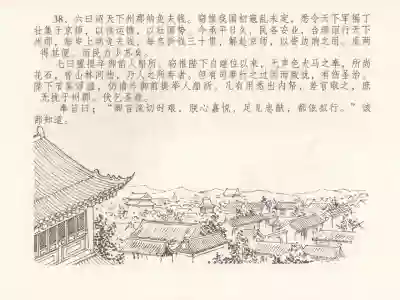 38. 六曰谓天下州郡纳免夫钱。窃惟我国初寇乱未定,悉令天下军徭丁
壮集于京师,以供运输,以壮国势。今承平日久,民各安业,合颁诏行天下
州郡,每岁上纳免夫钱,每名折钱三十贯,解赴京师,以资边饷之用。庶两
得其便,而民力少苏矣。
七曰慢提举御前人船所。窃惟陛下自继位以来,无声色犬马之奉,所尚
花石,皆山林间出,乃人之所弃者。但有司奉行之过因而致扰,有伤圣治。
陛下节其浮滥,仍请作御前提举人船所。凡有用悉出内帑,差官取之,庶
无扰于州郡。伏乞圣裁。
奉旨曰:“卿言深切时艰,朕心嘉悦,足见忠猷,都依拟行。”该
部知道。